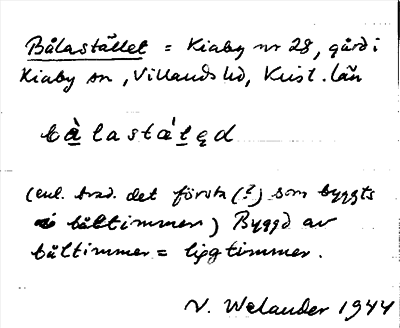 Bålastället = Kiaby nr 28, gård i
Kiaby sn, Villands hd, Krist. län
bàlastáled
(enl. trad. det första (?) som byggts
i båltimmer) Byggd av
båltimmer = liggtimmer.
N. Welander 1944